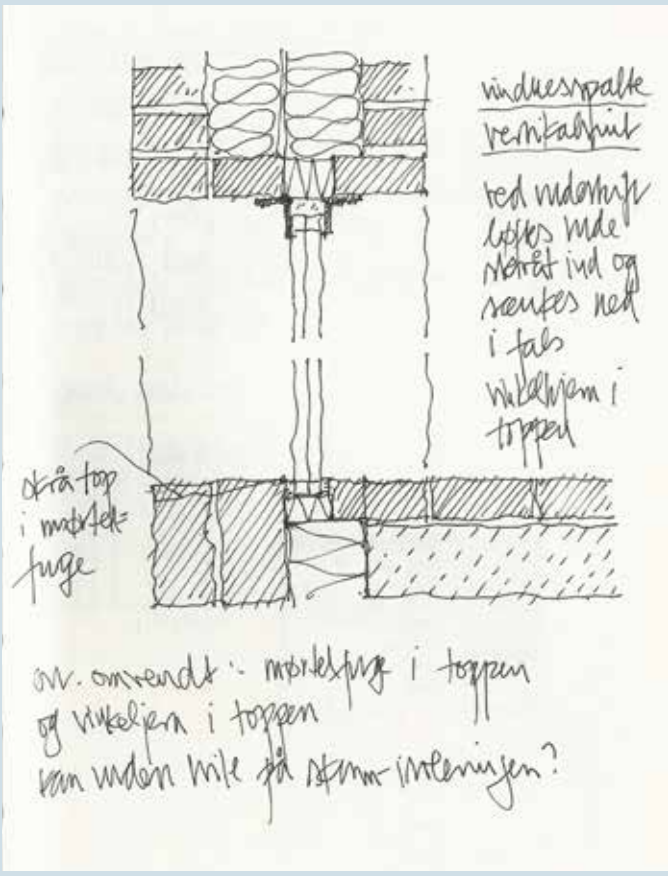 vinduesspalte
vertikalsnit
ved rudeskift
løftes rude
skråt ind og
sænkes ned
i fals
vinkeljern i
toppen
skrå top
i mørtel=
fuge
omvendt: mørtelfuge i toppen
og vinkeljern i toppen
kan ruden hvile på skum-isoleringen?